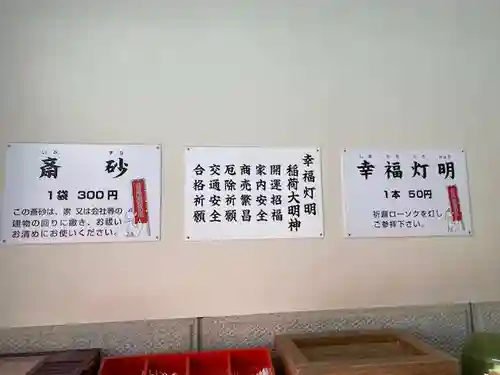 いみ すな
斎砂
1袋 300円
この斎砂は、家 又は会社等の
建物の回りに撒き、お祓い
お清めにお使いください。
幸福灯明
稲荷大明神
開運招福
家内安全
商売繁昌
厄除祈願
交通安全
合格祈願
幸福灯明
1本 50円
祈願ローソクを灯し
ご参拝下さい。